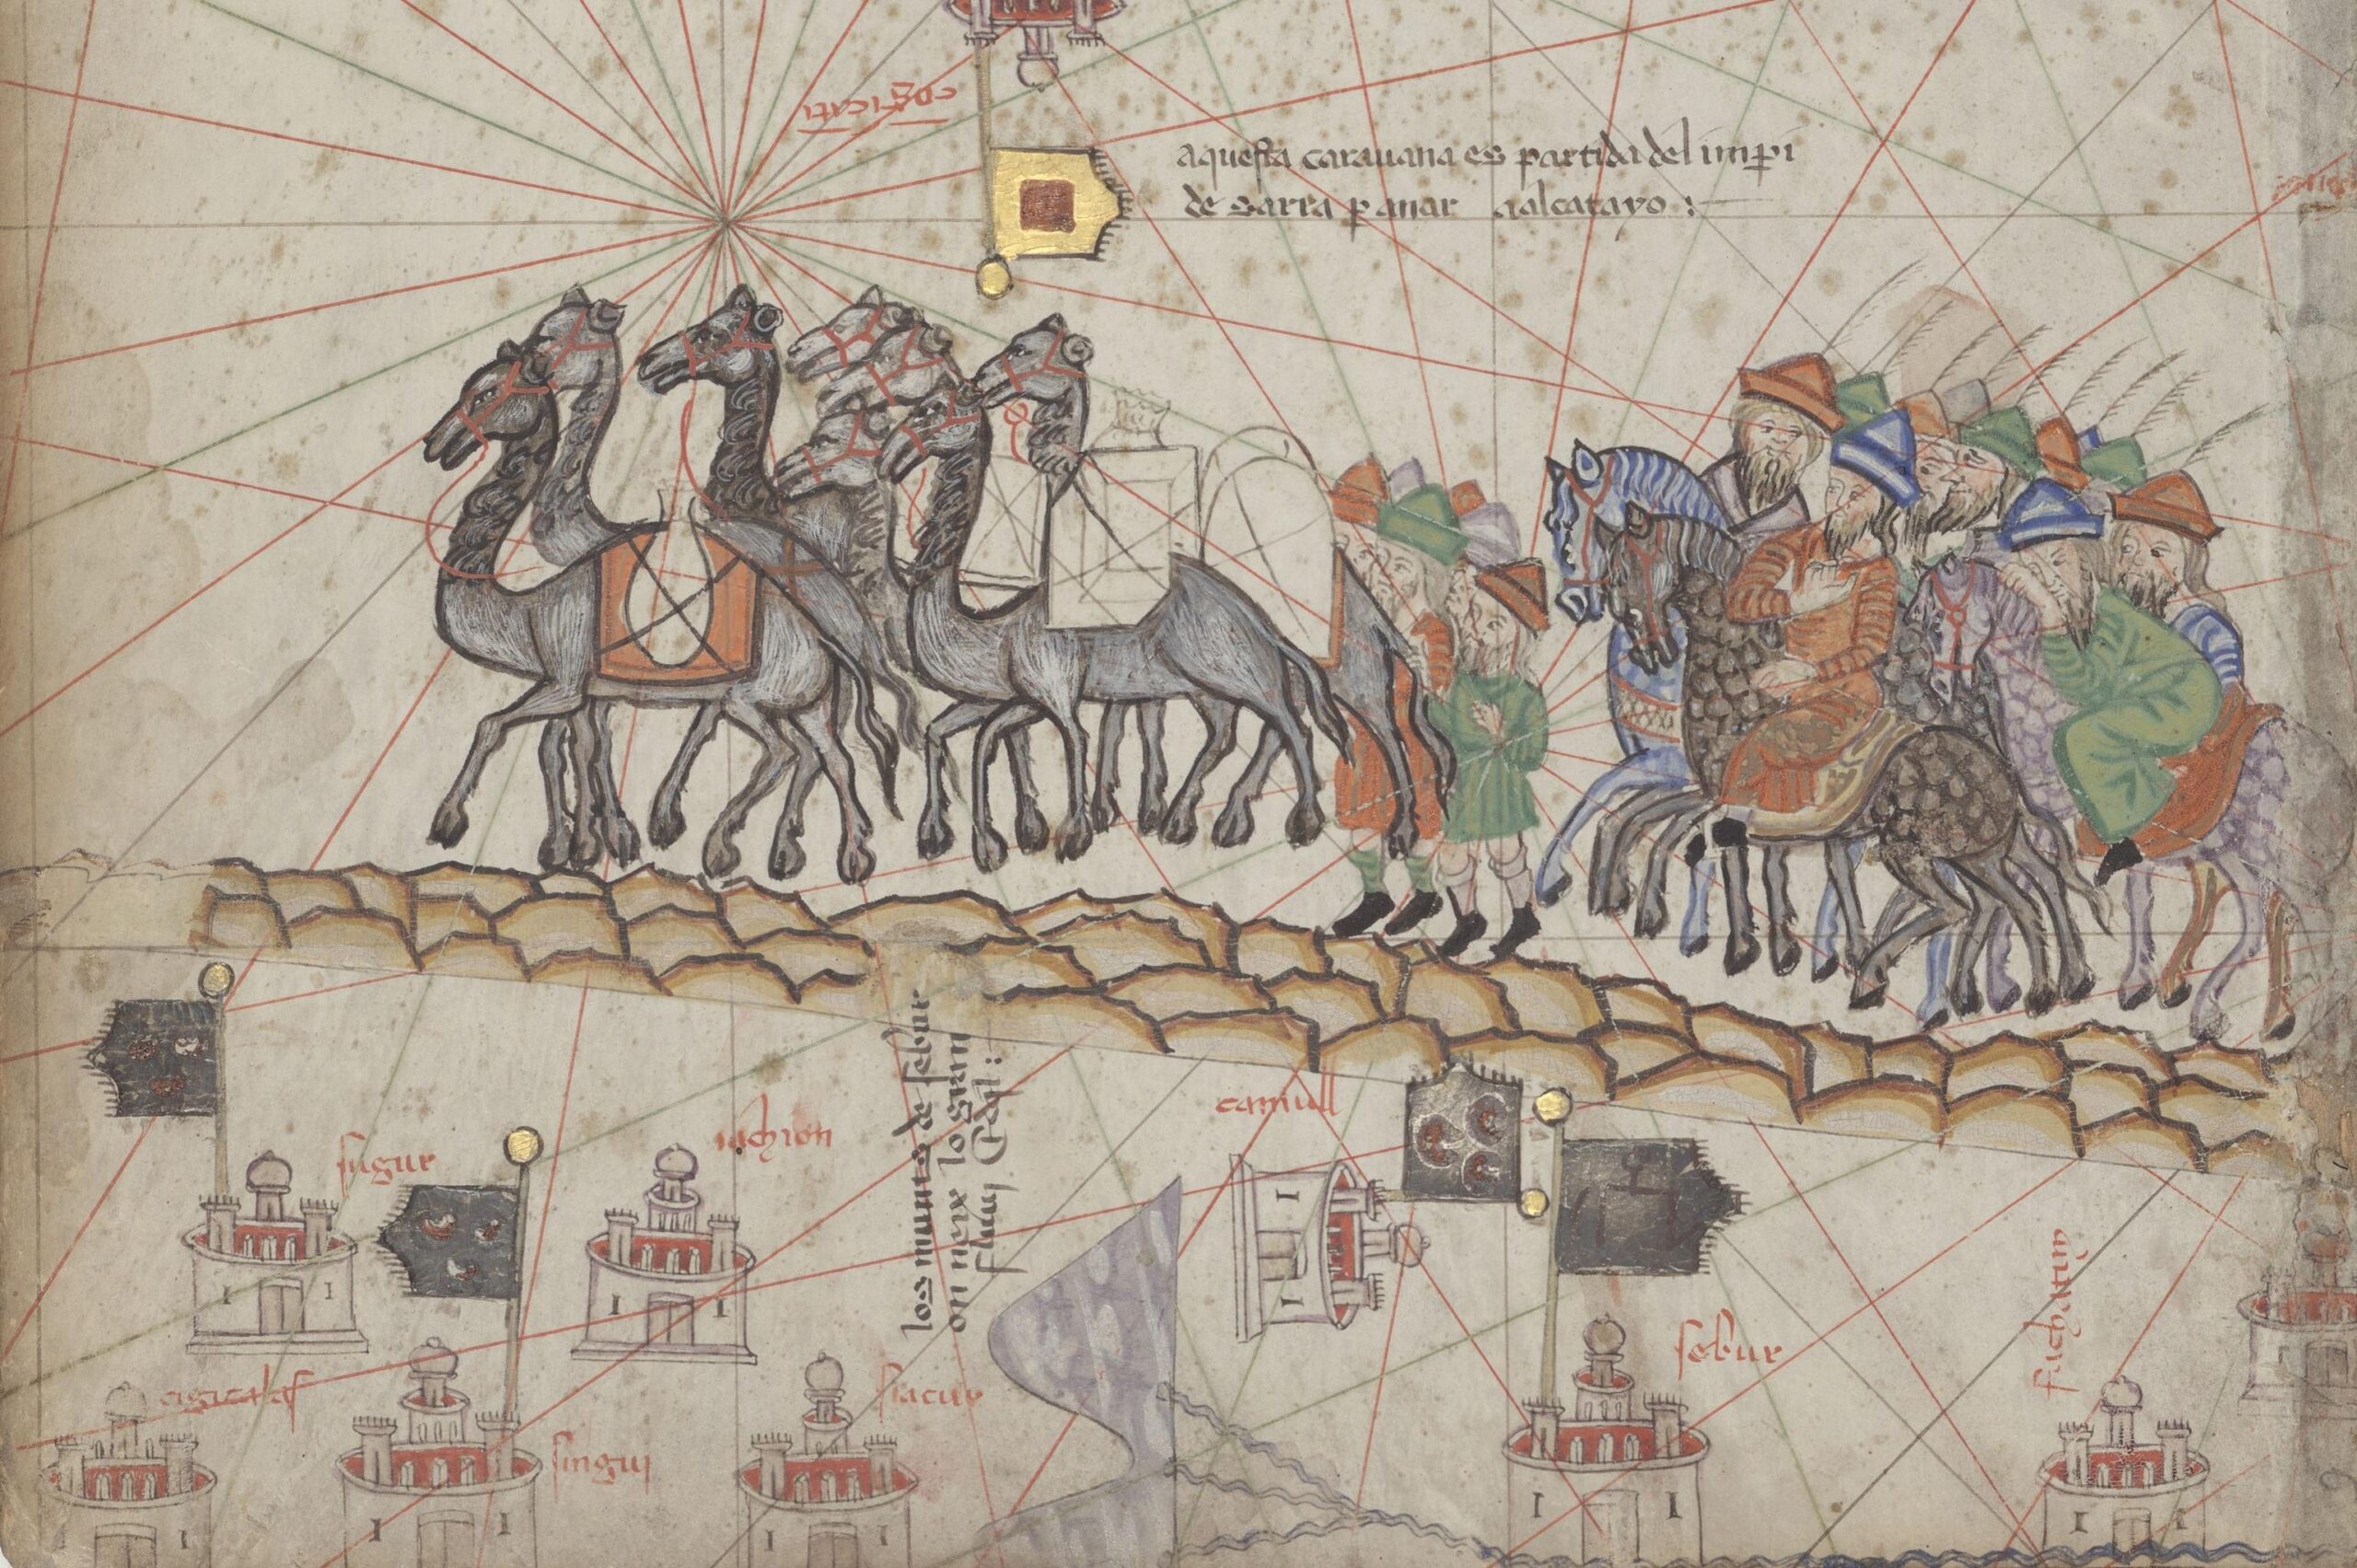 cogicati
aquesta carauana es partida del imperi
de sarra per anar aalcatayo :
los munts de sebur
on neix lo gran
fluuy Edil :
camull
sugur
iachion
sebur
fachatim
cigicalas
siacur
singuy